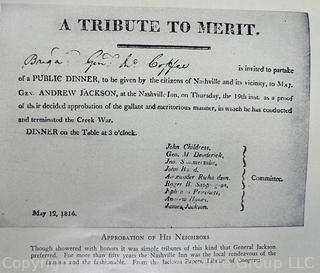 A TRIBUTE TO MERIT.
Brigd. Genl. Jno Coffee
is invited to partake
of a PUBLIC DINNER, to be given by the citizens of Nashville and its vicinity, to MAJ.
GEN. ANDREW JACKSON, at the Nashville Inn, on Thursday, the 19th inst. as a proof
of their decided approbation of the gallant and meritorious manner, in which he has conducted
and terminated the Creek War.
DINNER on the Table at 3 o'clock.
John Childress,
Geo. M Deaderick,
Jno.
John
Alexander Richardson,
Roger B. Sappington,
Committee.
Andrew Hynes,
James Jackson.
May 12, 1814.
APPROBATION OF HIS NEIGHBORS
Though showered with honors it was simple tributes of this kind that General Jackson
preferred. For more than fifty years the Nashville Inn was the local rendezvous of the
famous and the fashionable. From the Jackson Papers, Library of Congress.